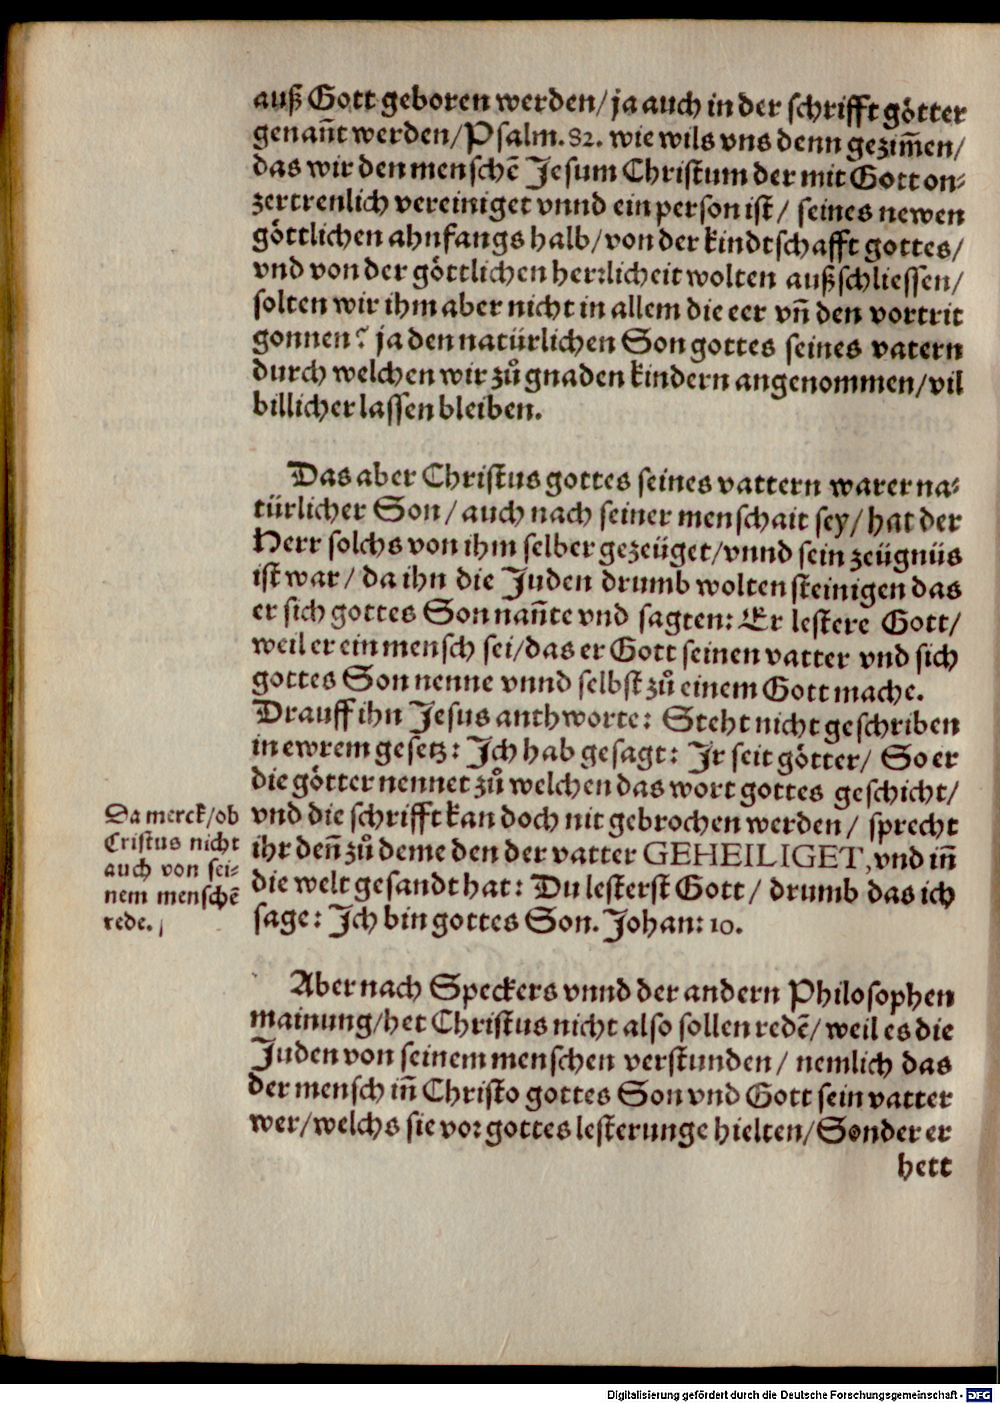 auß Gott geboren werden/ ja auch in der schrifft götter
genañt werden/ Psalm. 82. wie wils vns denn gezim̃en/
das wir den menschẽ Jesum Christum der mit Gott on⸗
zertrenlich vereiniget vnnd ein person ist/ seines newen
göttlichen ahnfangs halb/ von der kindtschafft gottes/
vnd von der göttlichen herꝛlicheit wolten außschliessen/
solten wir ihm aber nicht in allem die eer vñ den vortrit
gonnen? ja den natürlichen Son gottes seines vatern
durch welchen wir zů gnaden kindern angenommen/ vil
billicher lassen bleiben.
Das aber Christus gottes seines vattern warer na⸗
türlicher Son/ auch nach seiner menschait sey/ hat der
Herr solchs von ihm selber gezeüget/ vnnd sein zeügnüs
ist war/ da ihn die Juden drumb wolten steinigen das
er sich gottes Son nañte vnd sagten: Er lestere Gott/
weil er ein mensch sei/ das er Gott seinen vatter vnd sich
gottes Son nenne vnnd selbst zů einem Gott mache.
Drauff ihn Jesus anthworte: Steht nicht geschriben
in ewrem gesetz: Ich hab gesagt: Ir seit götter/ So er
die götter nennet zů welchen das wort gottes geschicht/
vnd die schrifft kan doch nit gebrochen werden/ sprecht
ihr deñ zů deme den der vatter GEHEILIGET, vnd iñ
die welt gesandt hat: Du lesterst Gott/ drumb das ich
sage: Ich bin gottes Son. Johan: 10.
Da merck/ ob
Cristus nicht
auch von sei⸗
nem menschẽ
rede.
Aber nach Speckers vnnd der andern Philosophen
mainung/ het Christus nicht also sollen redẽ/ weil es die
Juden von seinem menschen verstunden/ nemlich das
der mensch iñ Christo gottes Son vnd Gott sein vatter
wer/ welchs sie voꝛ gottes lesterunge hielten/ Sonder er
hett
Digitalisierung gefördert durch die Deutsche Forschungsgemeinschaft - DFG